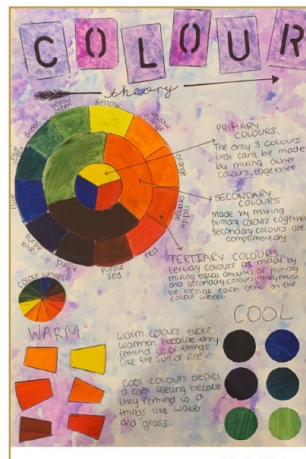 COLOUR
theory
yellow
green
yellow
yellow
orange
orange
orange
red
red
purple
red
purple
purple
blue
blue
green
PRIMARY
COLOURS.
The only 3 colours
that cant be made
by mixing other
colours together
SECONDARY
COLOURS
made by mixing
primary colours together
secondary colours are
complimentary
TERTIARY COLOURS
tertiary colours are made by
mixing equal amounts of primary
and secondary colours they must
be beside each other on the
colour wheel.
colour wheel
WARM
COOL
warm colours evoke
warmth because they
remind us of things
like the sun or fire
COOL COLOURS depict
a cool feeling because
they remind us a
things like water
and grass.